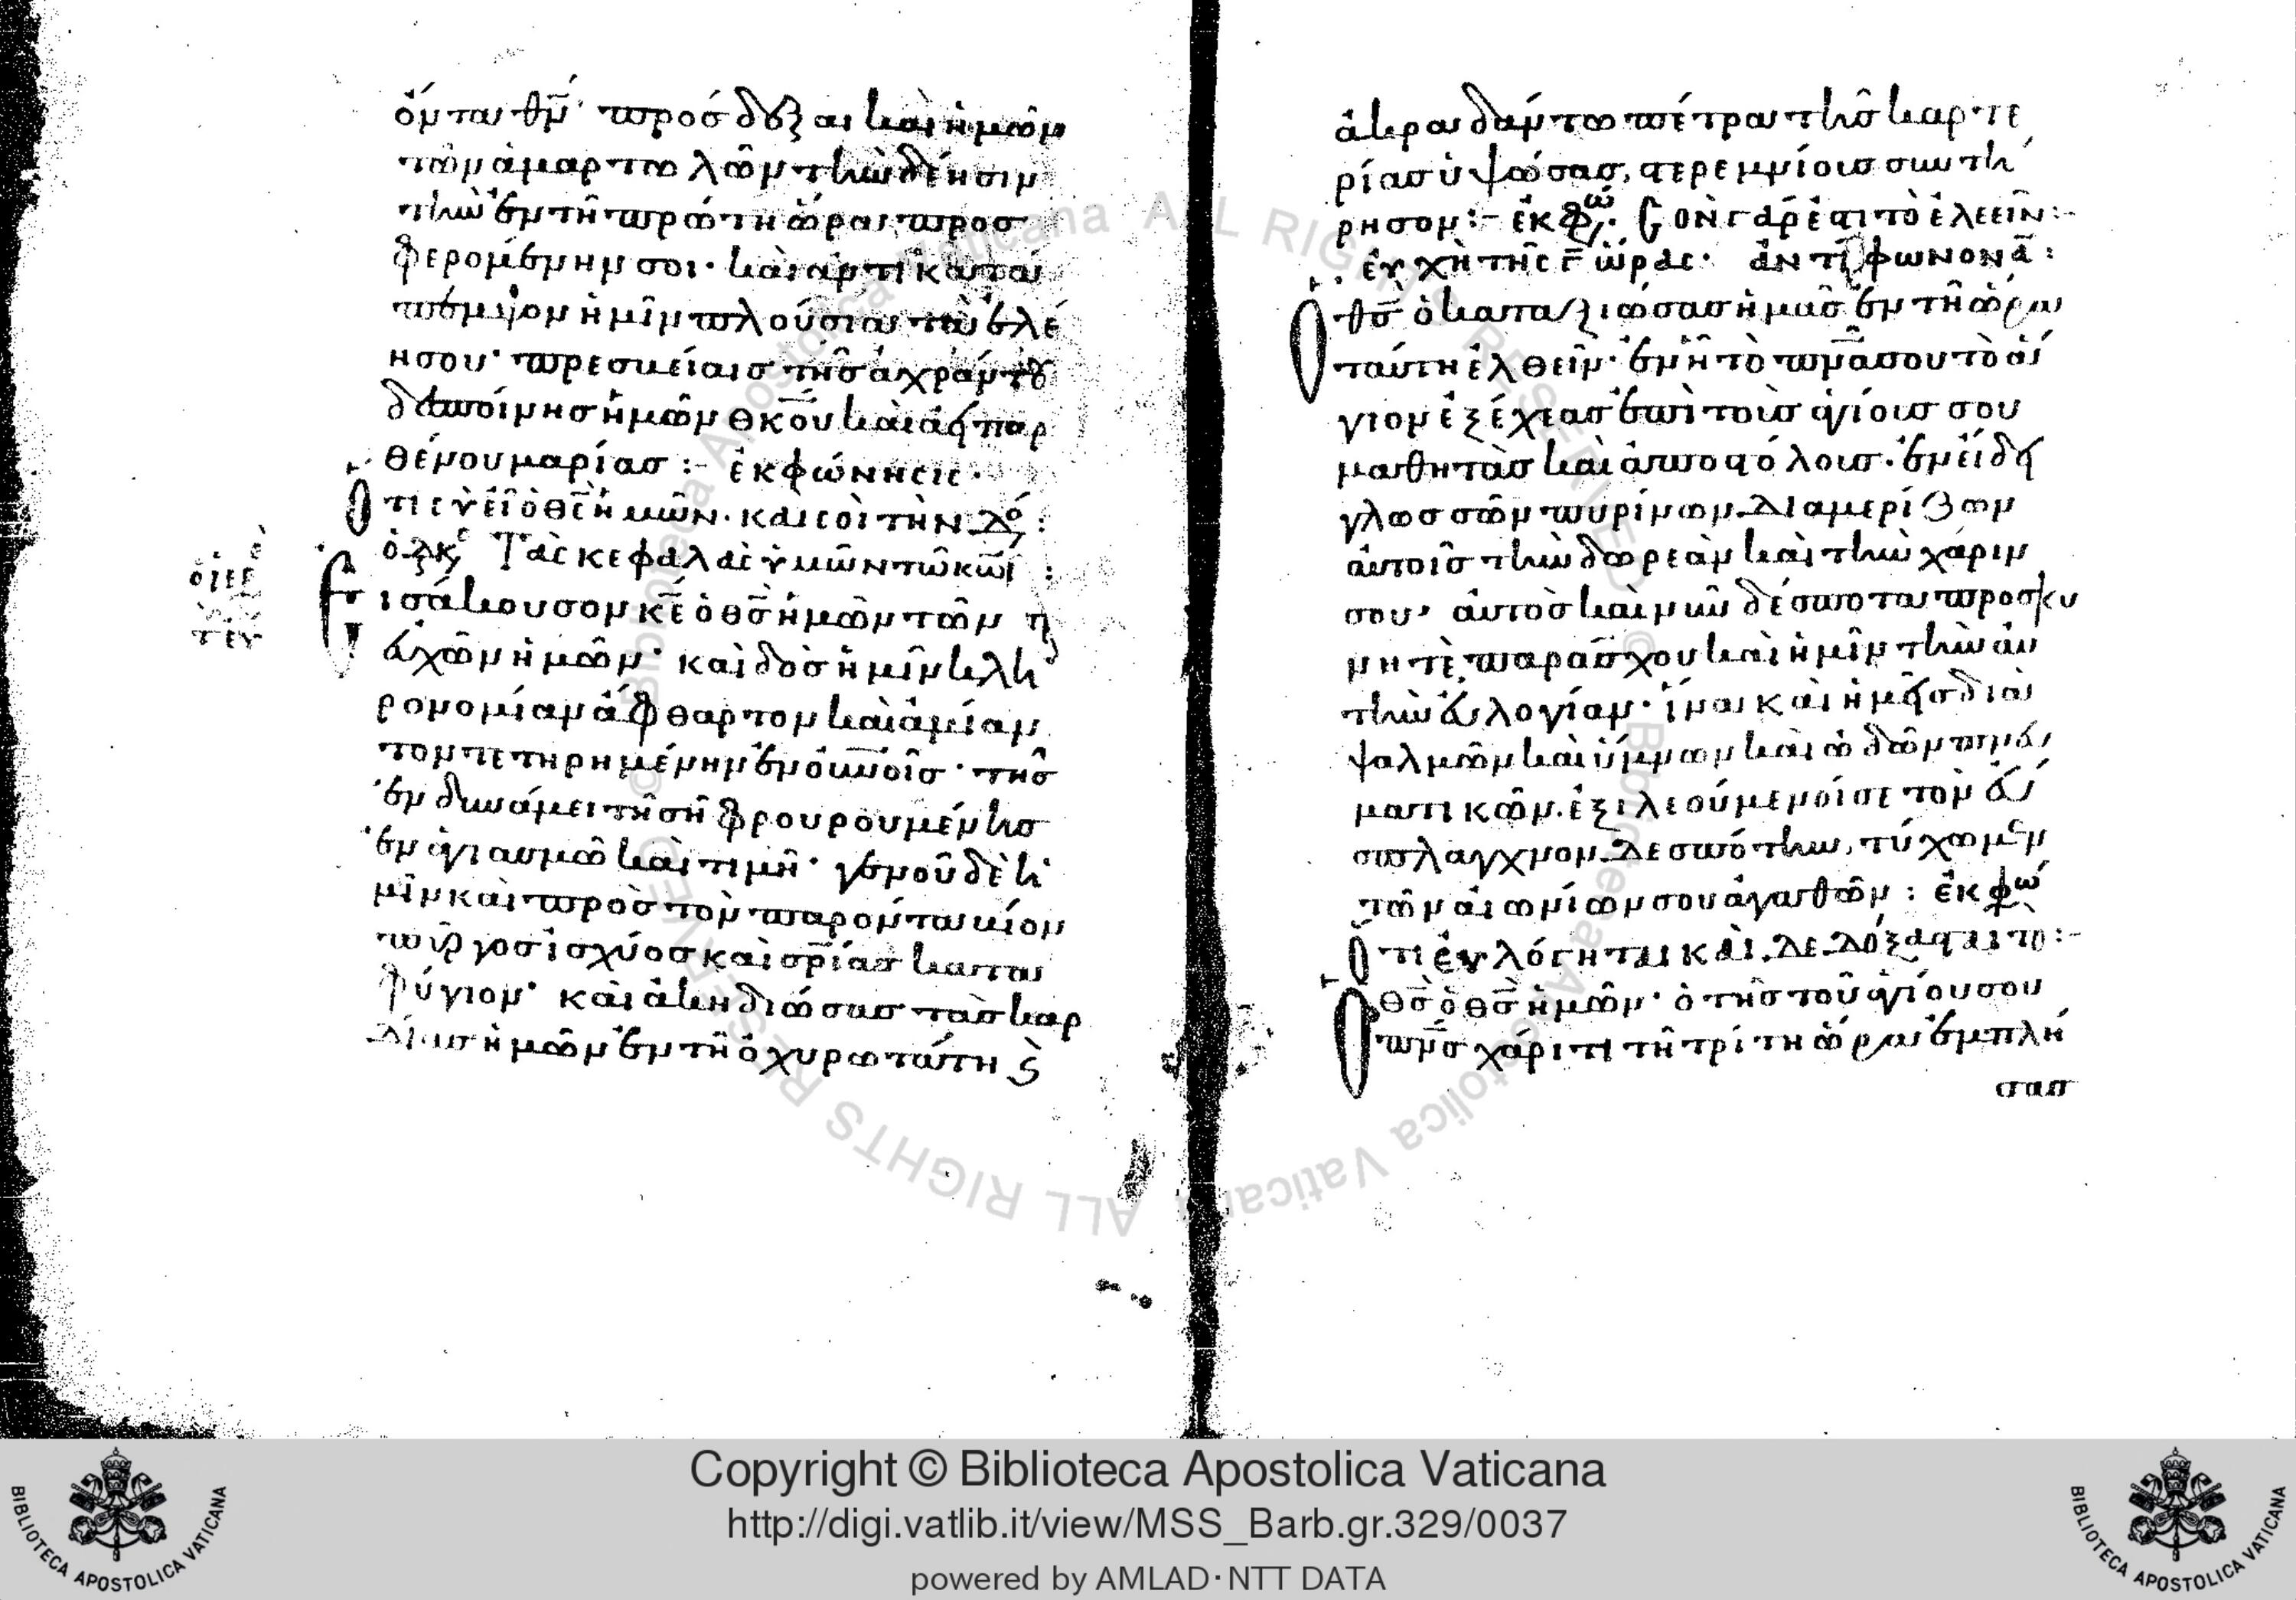 όντα θν̅· πρόσδεξαι καὶ ἡμῶν
τῶν ἁμαρτωλῶν τὴν δέησιν
τὴν ἐν τῇ πρώτῃ ὥρᾳ προσ
φερομένην σοι· καὶ ἄρτι κατά
πεμψον ἡμῖν πλούσια τὰ ἐλέ
η σου· πρεσβείαις τῆς ἀχράντου
δεσποίνης ἡμῶν θκ̅ου καὶ ἀειπαρ
θένου μαρίας :- ἐκφώνησις·
Ὅτι σὺ εἶ ὁ θς̅ ἡμῶν· καὶ σοὶ τὴν δό :
Τὰς κεφαλὰς ὑμῶν τῶ κω̅ι :
ὁ ἱερ
Εἰσάκουσον κε̅ ὁ θς̅ ἡμῶν τῶν π
ευχῶν ἡμῶν· καὶ δὸς ἡμῖν κλη
ρονομίαν ἄφθαρτον καὶ ἀμίαν
τον τετηρημένην ἐν οὐνοῖς· τῆς
ἐν δυνάμει τῇ σῇ φρουρουμένης
ἐν ἁγιασμῶ καὶ τιμῇ· γενοῦ δὲ ἡ
μῖν καὶ πρὸς τὸν παρόντα βίον
πύργος ἰσχύος καὶ σρ̅ίας κατα
φύγιον· καὶ ἀκηδιώσας τὰς καρ
δίας ἡμῶν ἐν τῇ ὀχυρωτάτη καὶ
ἀκραδάντω πέτρα τῆς καρτε
ρίας ὑψώσας, στερεμνίους συντή
ρησον :- ἐκφω· Σὸν γάρ ἐστι τὸ ἐλεεῖν :-
εὐχὴ τῆς γ̅ ὥρας· ἀντίφωνον α̅ :
Ὁ θς̅ ὁ καταξιώσας ἡμᾶς ἐν τῇ ὥρα
ταύτη ἐλθεῖν· ἐν ᾗ τὸ πνα̅ σου τὸ ἅ
γιον ἐξέχεας ἐπὶ τοὺς ἁγίους σου
μαθητὰς καὶ ἀποστόλους· ἐν εἴδει
γλωσσῶν πυρίνων διαμερίζων
αὐτοῖς τὴν δωρεὰν καὶ τὴν χάριν
σου· αὐτὸς καὶ νῦν δέσποτα προσκυ
νητὲ παράσχου καὶ ἡμῖν τὴν αὐ
τὴν εὐλογίαν· ἵνα καὶ ἡμεῖς διὰ
ψαλμῶν καὶ ὕμνων καὶ ὠδῶν πνευ
ματικῶν ἐξιλεούμενοί σε τὸν εὔ
σπλαγχνον δεσπότην, τύχωμεν
τῶν αἰωνίων σου ἀγαθῶν : ἐκφω
Ὅτι εὐλόγηται καὶ δεδόξασται τὸ :-
Ὁ θς̅ ὁ θς̅ ἡμῶν· ὁ τῆς τοῦ ἁγίου σου
πνς̅ χάριτι τῇ τρίτη ὥρα ἐμπλή
σας
Copyright © Biblioteca Apostolica Vaticana
http://digi.vatlib.it/view/MSS_Barb.gr.329/0037
powered by AMLAD·NTT DATA